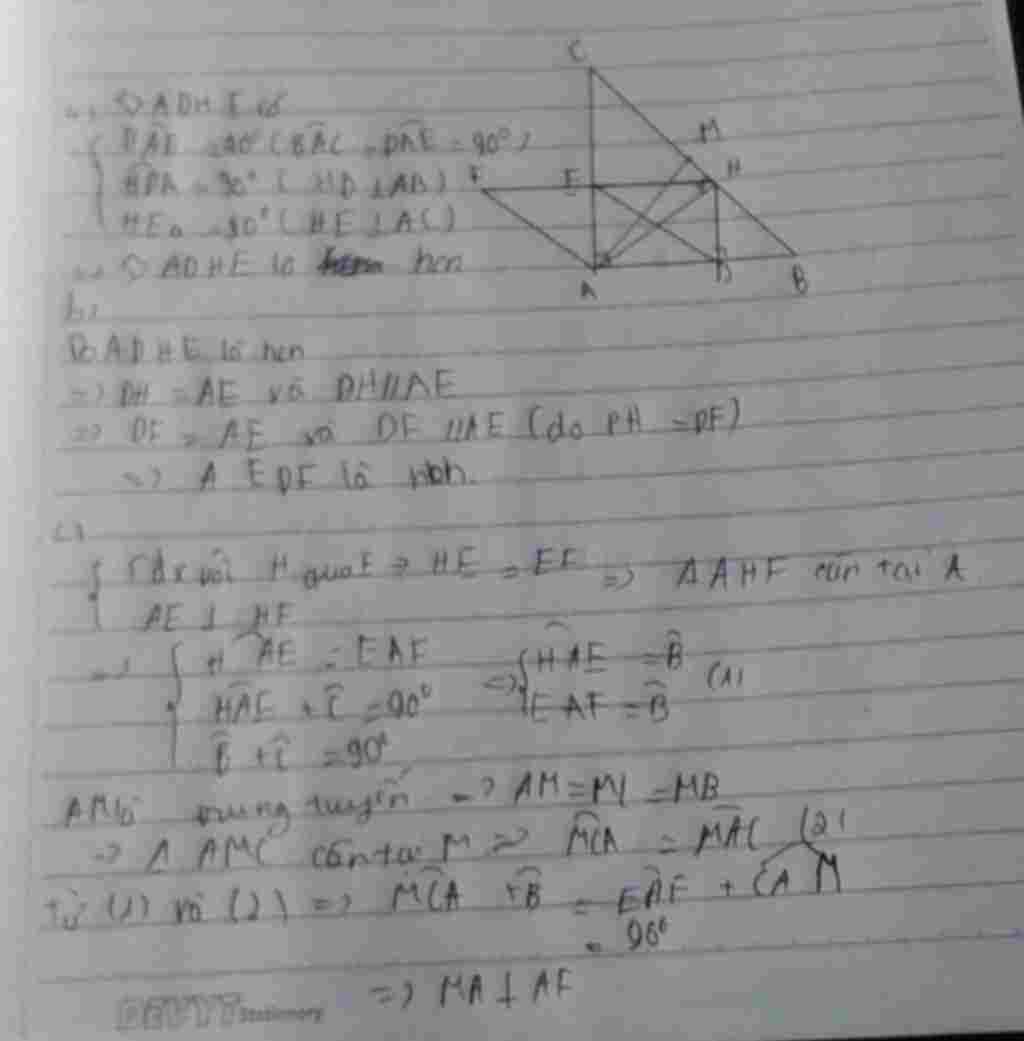 a, ◇ ADHE có
DAE = 90° (BAC = DAE = 90°)
HDA = 90° ( HD ⊥ AB)
HEA = 90° (HE ⊥ AC)
=> ◇ ADHE là hcn
C
M
H
F
E
A
D
B
b,
Do ADHE là hcn
=> DH = AE và DH // AE
=> DF = AE và DF // AE (do DH = DF)
=> A E DF là hbh.
c)
F đx với H qua E => HE = EF => Δ AHF cân tại A
AE ⊥ HF
=> HAE = EAF
HAE + C = 90°
B + C = 90°
<=> HAE = B
EAF = B (1)
AM là trung tuyến => AM = MC = MB
=> Δ AMC cân tại M => MCA = MAC (2)
Từ (1) và (2) => MCA + B = EAF + CAM
= 90°
=> MA ⊥ AF
DEVYT Stationery